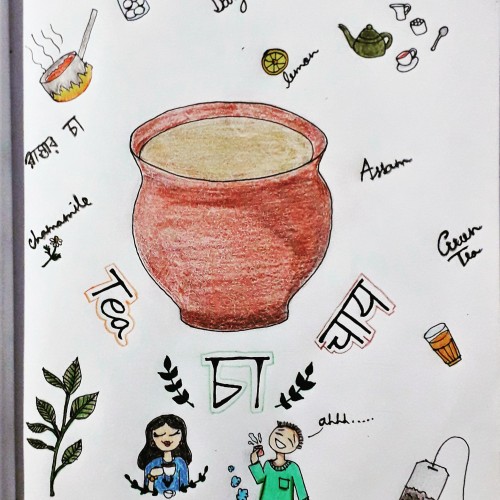 lemon
চা
Assam
chamamile
Green
Tea
Tea
चाय
চা
ahhh.....